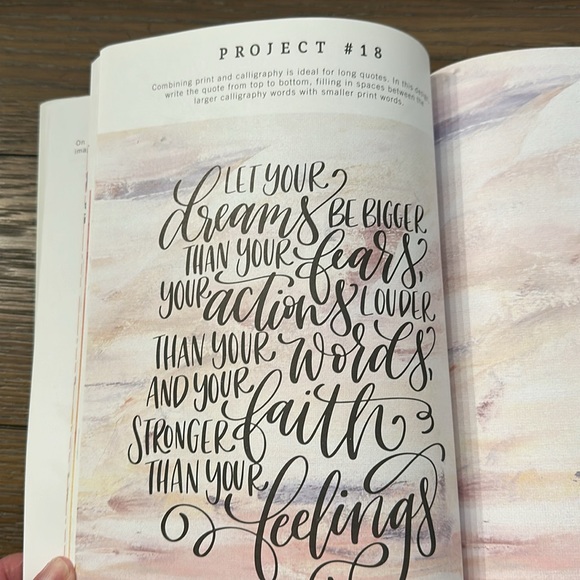 PROJECT #18
Combining print and calligraphy is ideal for long quotes. In this
write the quote from top to bottom, filling in spaces between the
larger calligraphy words with smaller print words.
On
LET YOUR
dreams BE BIGGER
THAN YOUR fears,
YOUR actions LOUDER
THAN YOUR words,
AND YOUR faith
STRONGER
THAN YOUR
feelings